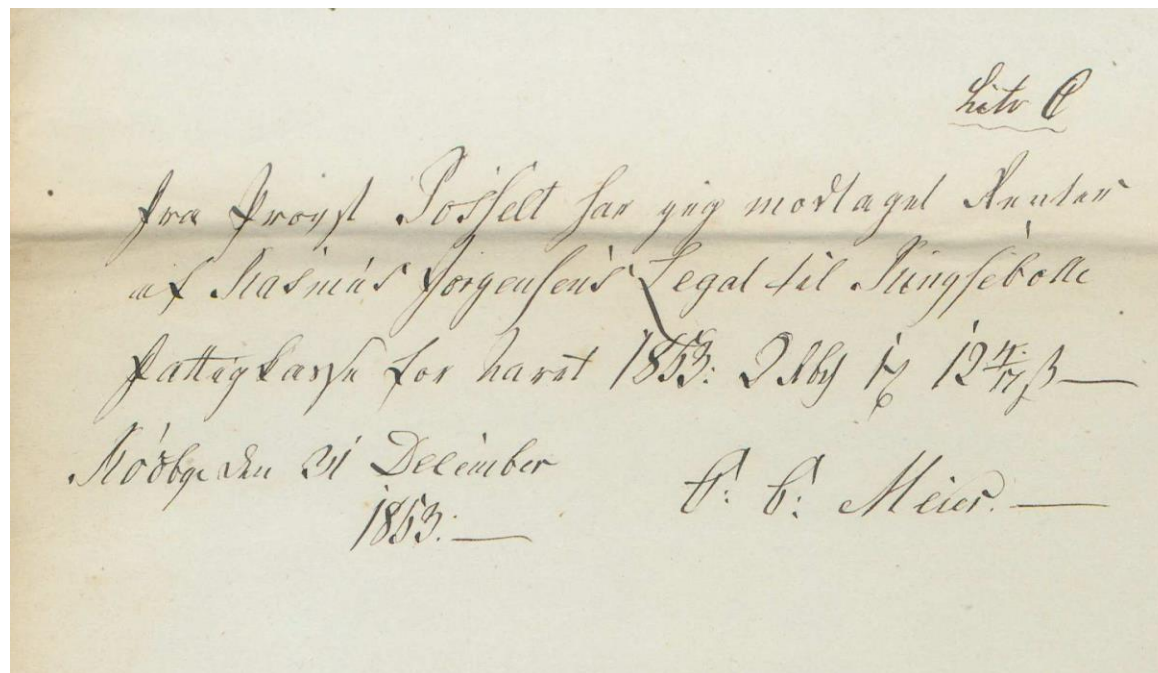 Litr C
Fra Provst Posselt har jeg modtaget Renter
af Rasmus Jørgensens Legat til Ringsebølle
Fattigkasse for Aaret 1853: 2 Rbd 1 ₰ 12 4/17 ß —
Rødbye den 21 December
1853. —
C: C: Meier. —